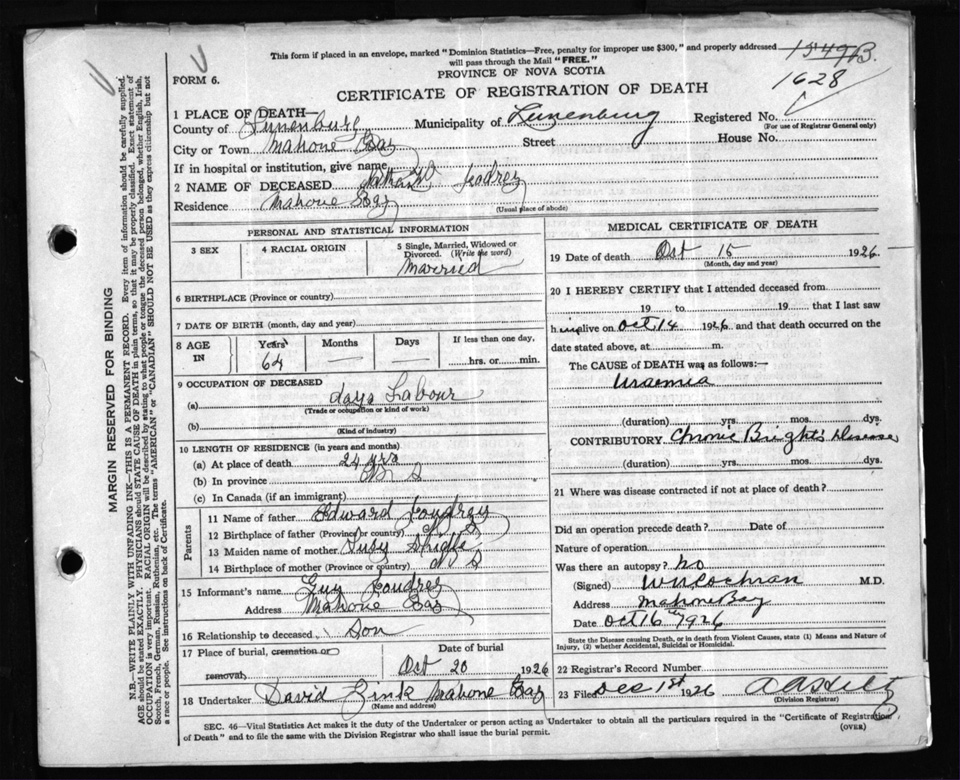 This form if placed in an envelope, marked "Dominion Statistics—Free, penalty for improper use $300," and properly addressed
will pass through the Mail "FREE."
1549B.
1628
FORM 6.
PROVINCE OF NOVA SCOTIA
CERTIFICATE OF REGISTRATION OF DEATH
1 PLACE OF DEATH
County of Lunenburg Municipality of Lunenburg Registered No.
(For use of Registrar General only)
City or Town Mahone Bay Street House No.
If in hospital or institution, give name
2 NAME OF DECEASED
Residence Mahone Bay
(Usual place of abode)
PERSONAL AND STATISTICAL INFORMATION
3 SEX 4 RACIAL ORIGIN 5 Single, Married, Widowed or
Divorced. (Write the word)
Married
6 BIRTHPLACE (Province or country)
7 DATE OF BIRTH (month, day and year)
8 AGE IN Years Months Days If less than one day,
64 — — hrs. or min.
9 OCCUPATION OF DECEASED
(a) days Labour
(Trade or occupation or kind of work)
(b)
(Kind of industry)
10 LENGTH OF RESIDENCE (in years and months)
(a) At place of death 24 yrs
(b) In province N S
(c) In Canada (if an immigrant)
Parents
11 Name of father Edward Joudrey
12 Birthplace of father (Province or country) N S
13 Maiden name of mother Susy
14 Birthplace of mother (Province or country) N S
15 Informant's name Guy Joudrey
Address Mahone Bay
16 Relationship to deceased Son
17 Place of burial, cremation or Date of burial
removal, Oct 20 1926
18 Undertaker David Zink Mahone Bay
(Name and address)
MEDICAL CERTIFICATE OF DEATH
19 Date of death Oct 15 1926
(Month, day and year)
20 I HEREBY CERTIFY that I attended deceased from
19 to 19 that I last saw
him alive on Oct 14 1926 and that death occurred on the
date stated above, at m.
The CAUSE of DEATH was as follows:—
Uraemia
(duration) yrs. mos. dys.
CONTRIBUTORY Chronic Bright's Disease
(duration) yrs. mos. dys.
21 Where was disease contracted if not at place of death?
Did an operation precede death? Date of
Nature of operation
Was there an autopsy? No
(Signed) W N Cochran M.D.
Address Mahone Bay
Date Oct 16 1926
State the Disease causing Death, or in death from Violent Causes, state (1) Means and Nature of
Injury, (2) whether Accidental, Suicidal or Homicidal.
22 Registrar's Record Number
23 Filed Dec 1st 1926
(Division Registrar)
SEC. 46—Vital Statistics Act makes it the duty of the Undertaker or person acting as Undertaker to obtain all the particulars required in the "Certificate of Registration
of Death" and to file the same with the Division Registrar who shall issue the burial permit.
(OVER)
MARGIN RESERVED FOR BINDING
N.B.—WRITE PLAINLY WITH UNFADING INK—THIS IS A PERMANENT RECORD. Every item of information should be carefully supplied.
AGE should be stated EXACTLY. PHYSICIANS should STATE CAUSE OF DEATH in plain terms, so that it may be properly classified. Exact statement of
OCCUPATION is very important. RACIAL ORIGIN will be described by stating to what people or tongue the deceased person belonged, whether English, Irish,
Scotch, French, German, Russian, Ruthenian, etc. The terms "AMERICAN" or "CANADIAN" SHOULD NOT BE USED as they express citizenship but not
a race or people. See instructions on back of Certificate.